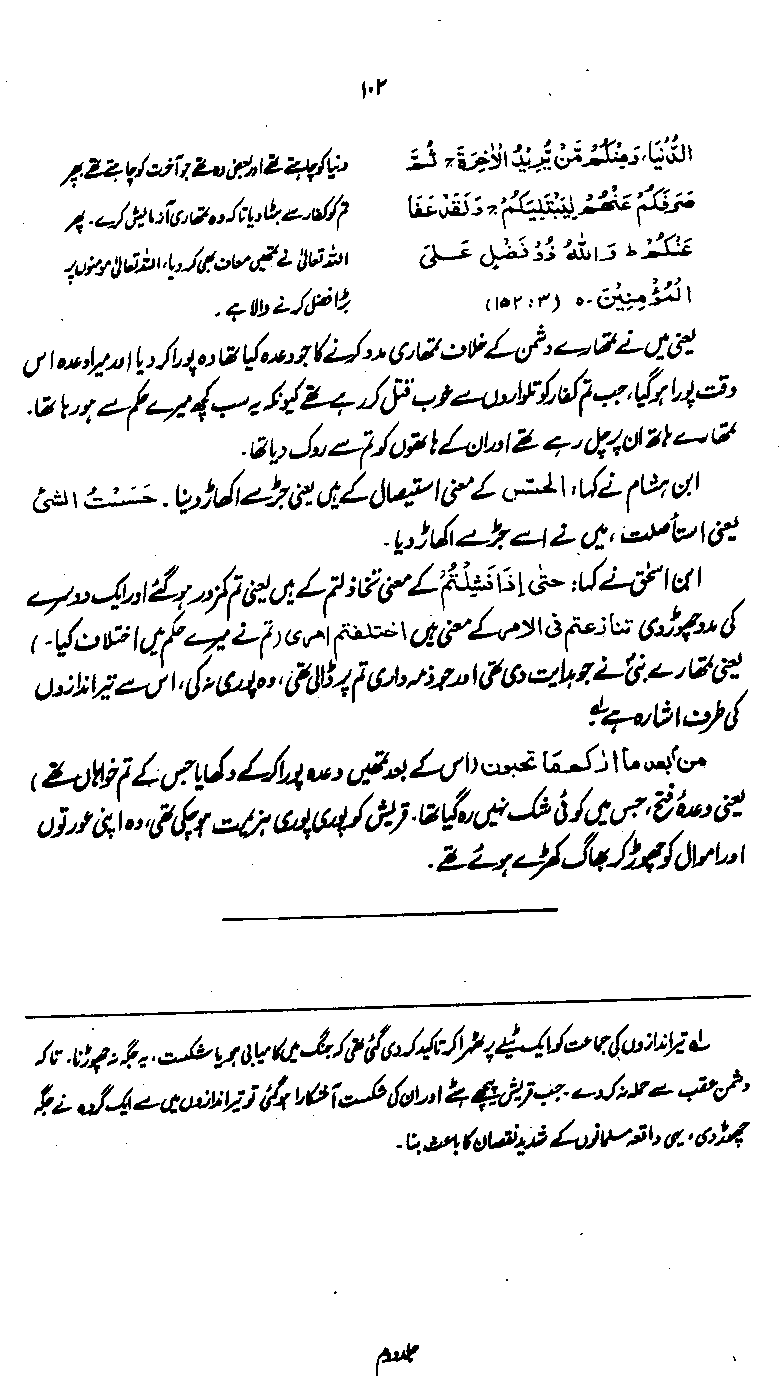 ۱۰۲
الدُّنْيَا، وَمِنْكُمْ مَّنْ يُّرِيْدُ الْاٰخِرَةَ ج ثُمَّ
صَرَفَكُمْ عَنْهُمْ لِيَبْتَلِيَكُمْ ج وَلَقَدْ عَفَا
عَنْكُمْ ط وَاللّٰهُ ذُوْ فَضْلٍ عَلَى
الْمُؤْمِنِيْنَ ٥ (۳: ۱۵۲)
دنیا کو چاہتے تھے اور بعض وہ تھے جو آخرت کو چاہتے تھے، پھر
تم کو کفار سے ہٹا دیا تاکہ وہ تمھاری آزمایش کرے۔ پھر
اللہ تعالیٰ نے تمھیں معاف بھی کر دیا، اللہ تعالیٰ مومنوں پر
بڑا فضل کرنے والا ہے۔
یعنی میں نے تمھارے دشمن کے خلاف تمھاری مدد کرنے کا جو وعدہ کیا تھا وہ پورا کر دیا اور میرا وعدہ اس
وقت پورا ہو گیا، جب تم کفار کو تلواروں سے خوب قتل کر رہے تھے کیونکہ یہ سب کچھ میرے حکم سے ہو رہا تھا۔
تمھارے ہاتھ ان پر چل رہے تھے اور ان کے ہاتھوں کو تم سے روک دیا تھا۔
ابن ہشام نے کہا، الحس کے معنی استیصال کے ہیں یعنی جڑ سے اکھاڑ دینا۔ حَسَسْتُ الشئ
یعنی استأصلت، میں نے اسے جڑ سے اکھاڑ دیا۔
ابن اسحٰق نے کہا: حتٰی اِذَا فَشِلْتُمْ کے معنی تخاذلتم کے ہیں یعنی تم کمزور ہو گئے اور ایک دوسرے
کی مدد چھوڑ دی تنازعتم فی الامر کے معنی ہیں اختلفتم امری (تم نے میرے حکم میں اختلاف کیا۔)
یعنی تمھارے نبیؐ نے جو ہدایت دی تھی اور جو ذمہ داری تم پر ڈالی تھی، وہ پوری نہ کی، اس سے تیر اندازوں
کی طرف اشارہ ہے لہ
من بعد ما اراکم ما تحبون (اس کے بعد تمھیں وعدہ پورا کر کے دکھایا جس کے تم خواہاں تھے)
یعنی وعدۂ فتح، جس میں کوئی شک نہیں رہ گیا تھا۔ قریش کو پوری پوری ہزیمت ہو چکی تھی، وہ اپنی عورتوں
اور اموال کو چھوڑ کر بھاگ کھڑے ہوئے تھے۔
لہ تیر اندازوں کی جماعت کو ایک ٹیلے پر ٹھہرا کر تاکید کر دی گئی تھی کہ جنگ میں کامیابی ہو یا شکست، یہ جگہ نہ چھوڑنا۔ تاکہ
دشمن عقب سے حملہ نہ کر دے۔ جب قریش پیچھے ہٹے اور ان کی شکست آشکارا ہو گئی تو تیر اندازوں میں سے ایک گروہ نے جگہ
چھوڑ دی، یہی واقعہ مسلمانوں کے شدید نقصان کا باعث بنا۔
جلد دوم